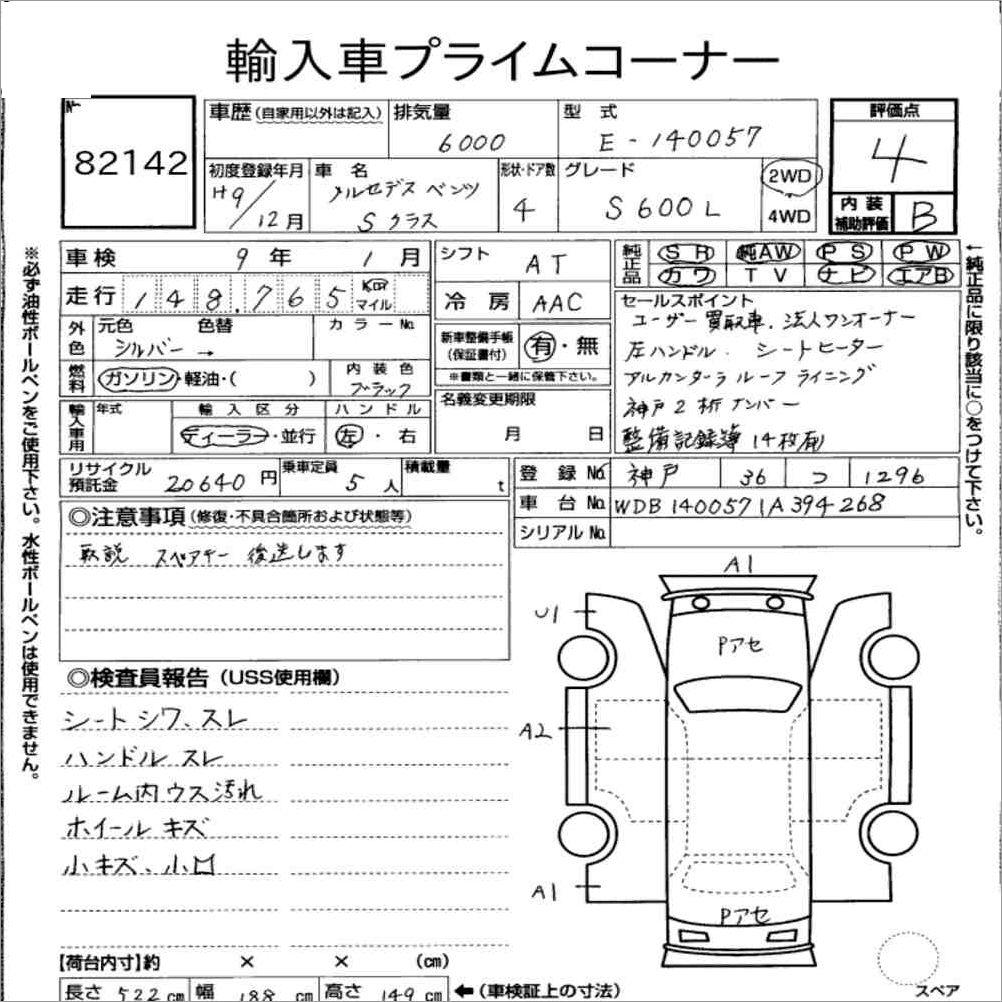 輸入車プライムコーナー
№
82142
車歴(自家用以外は記入)
排気量
6000
型 式
E-140057
評価点
4
初度登録年月
H9/12月
車 名
メルセデス ベンツ
S クラス
形状・ドア数
4
グレード
S 600 L
2WD
4WD
内 装
補助評価
B
※必ず油性ボールペンをご使用下さい。水性ボールペンは使用できません。
車 検
9 年 1 月
走 行
148,765
マイル
シフト
A T
冷 房
AAC
純正品
SR 純AW PS PW
カワ TV ナビ エアB
←純正品に限り該当に○をつけて下さい。
外色
元色 色替
シルバー →
カラーNo.
燃料
ガソリン・軽油・( )
内 装 色
ブラック
新車整備手帳
(保証書付)
有・無
※書類と一緒に保管下さい。
セールスポイント
ユーザー買取車. 法人ワンオーナー
左ハンドル. シートヒーター
アルカンターラ ルーフ ライニング
神戸2桁ナンバー
整備記録簿 14枚有
輸入車用
年式
輸 入 区 分
ディーラー・並行
ハ ン ド ル
左・右
名義変更期限
月 日
リサイクル
預託金
20640 円
乗車定員
5 人
積載量
t
登 録 No.
神戸 36 つ 1296
車 台 No.
WDB1400571A394268
シリアル No.
◎注意事項(修復・不具合箇所および状態等)
取説 スペアキー 後送します
A1
U1
Pアセ
A2
A1
Pアセ
◎検査員報告(USS使用欄)
シート シワ、スレ
ハンドル スレ
ルーム内ウス汚れ
ホイール キズ
小キズ、小凹
【荷台内寸】約 × × (cm)
長さ 522 cm 幅 188 cm 高さ 149 cm ←(車検証上の寸法)
スペア